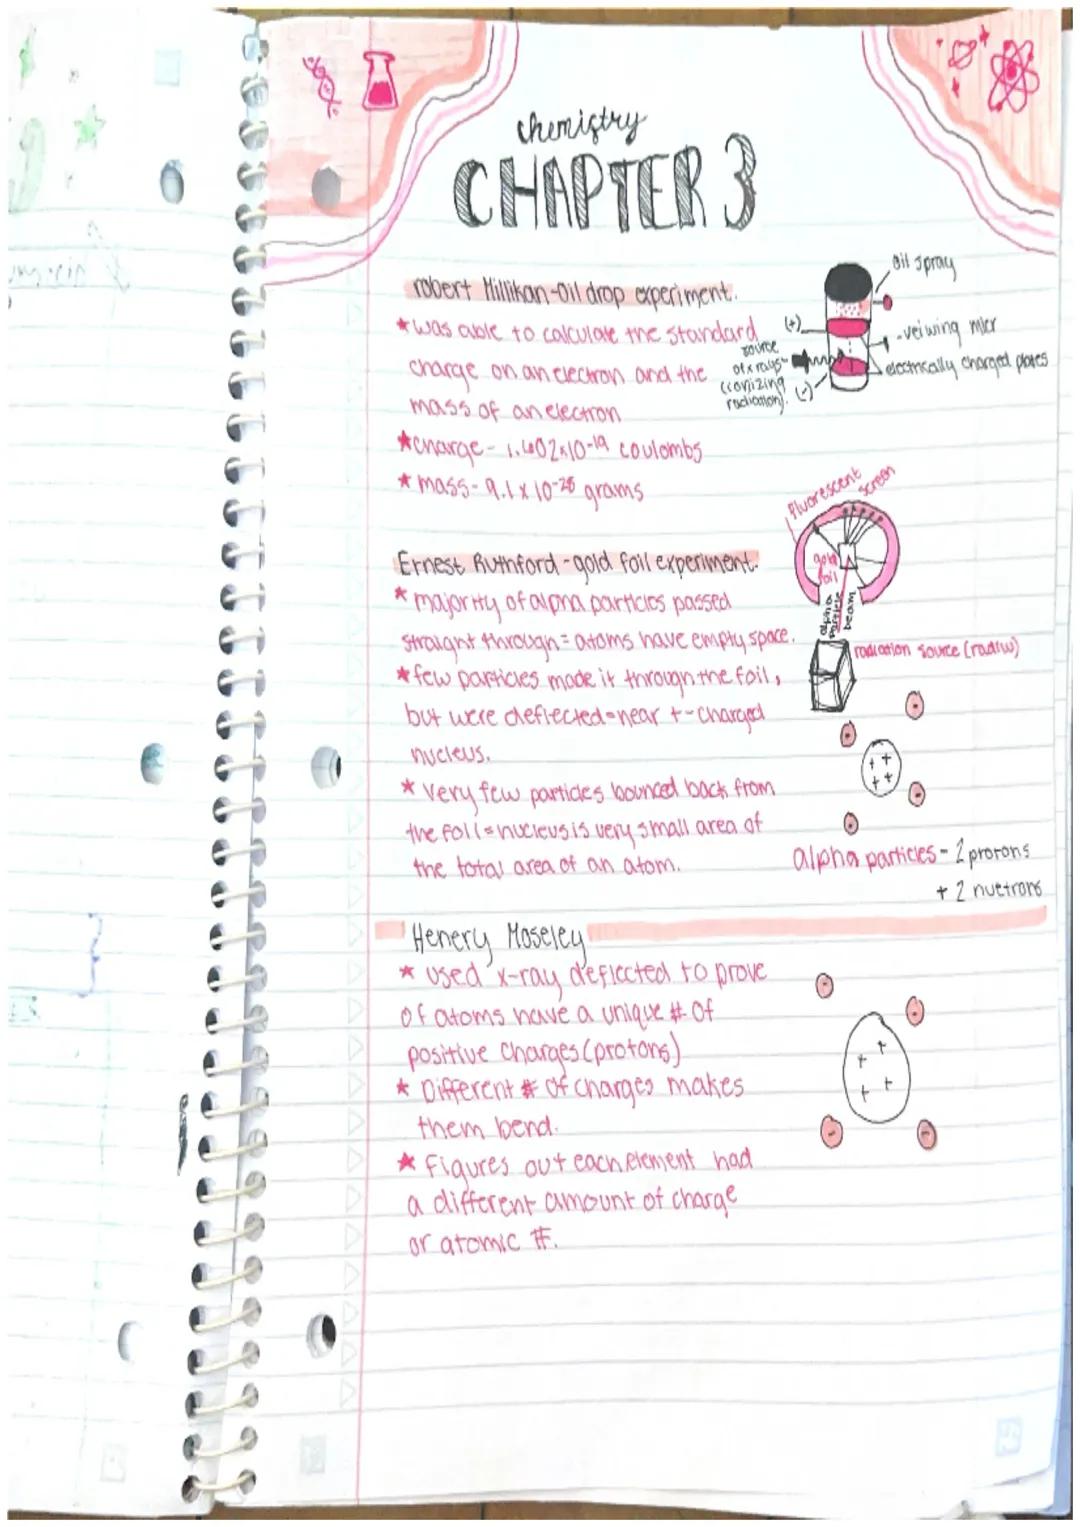 chemistry
CHAPTER 3
robert Millikan-Oil drop experiment.
* was able to calculate the standard
charge on an electron and the
mass of an electron
* charge - 1.602x10-19 coulombs
* mass - 9.1 x 10-28 grams
oil spray
(+)
- veiwing micr
source
of x rays
(ionizing
radiation).
(-)
electrically charged plates
Ernest Ruthford - gold foil experiment.
* majority of alpha particles passed
straight through = atoms have empty space.
* few particles made it through the foil,
but were deflected = near + - charged
nucleus.
* very few particles bounced back from
the foil = nucleus is very small area of
the total area of an atom.
fluorescent
screen
gold
foil
alpha
particle
beam
radiation source (radiw)
-
-
+ +
+ +
-
-
alpha particles - 2 protons
+ 2 nuetrons
Henery Moseley
* used x-ray deflected to prove
of atoms have a unique # of
positive charges (protons)
* Different # of charges makes
them bend.
* Figures out each element had
a different amount of charge
or atomic #.
-
-
+ +
+ +
-
-